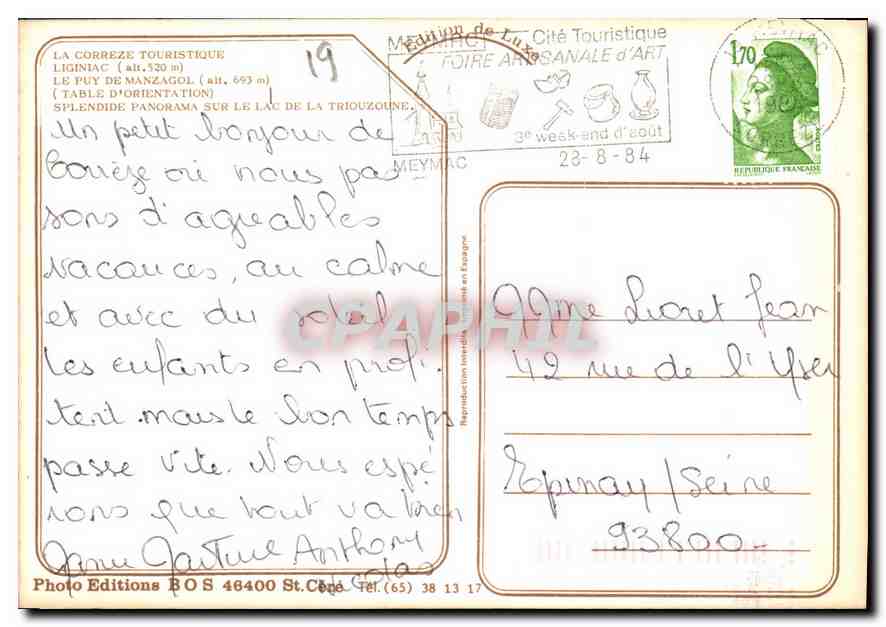 LA CORREZE TOURISTIQUE
LIGINIAC (alt. 520 m)
LE PUY DE MANZAGOL (alt. 693 m)
(TABLE D'ORIENTATION)
SPLENDIDE PANORAMA SUR LE LAC DE LA TRIOUZOUNE.
19
Edition de Luxe
MEYMAC Cité Touristique
FOIRE ARTISANALE d'ART
3e week-end d'août
MEYMAC 28-8-84
1,70
REPUBLIQUE FRANÇAISE
Un petit bonjour de
Corrèze où nous pas
sons d'agréables
vacances, au calme
et avec du soleil
Les enfants en profi-
tent mais le bon temps
passe vite. Nous espé
rons que tout va bien
Martine Anthony
Nicolas
Reproduction Interdite Imprimé en Espagne
Mme Lioret Jean
42 rue de l'Yser
Epinay/Seine
93800
CPAPHIL
Photo Editions BOS 46400 St. Céré Tél. (65) 38 13 17